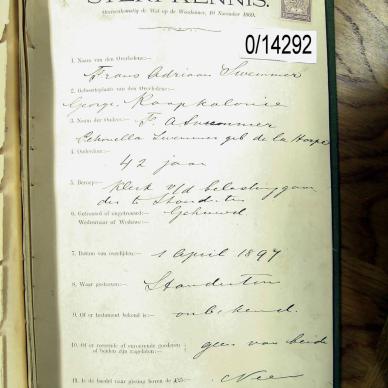 STERFKENNIS.
Overeenkomstig de Wet op de Weeskamer, 10 November 1869.
0/14292
1. Naam van den Overledene:—
Frans Adriaan Swemmer
2. Geboorteplaats van den Overledene:—
George. Kaapkolonie
3. Namen der Ouders:— Fr A Swemmer
Petronella Swemmer geb de la Harpe
4. Ouderdom:—
42 jaar
5. Beroep:—
Klerk v/d belastinggaar
der te Standerton
6. Getrouwd of ongetrouwd:— Gehuwd
Weduwnaar of Weduwe:
7. Datum van overlijden:—
1 April 1897
8. Waar gestorven:—
Standerton
9. Of er testament bekend is:—
onbekend.
10. Of er roerende of onroerende goederen
of beiden zijn nagelaten:—
geen van beide
11. Is de boedel naar gissing boven de £25:—
Nee